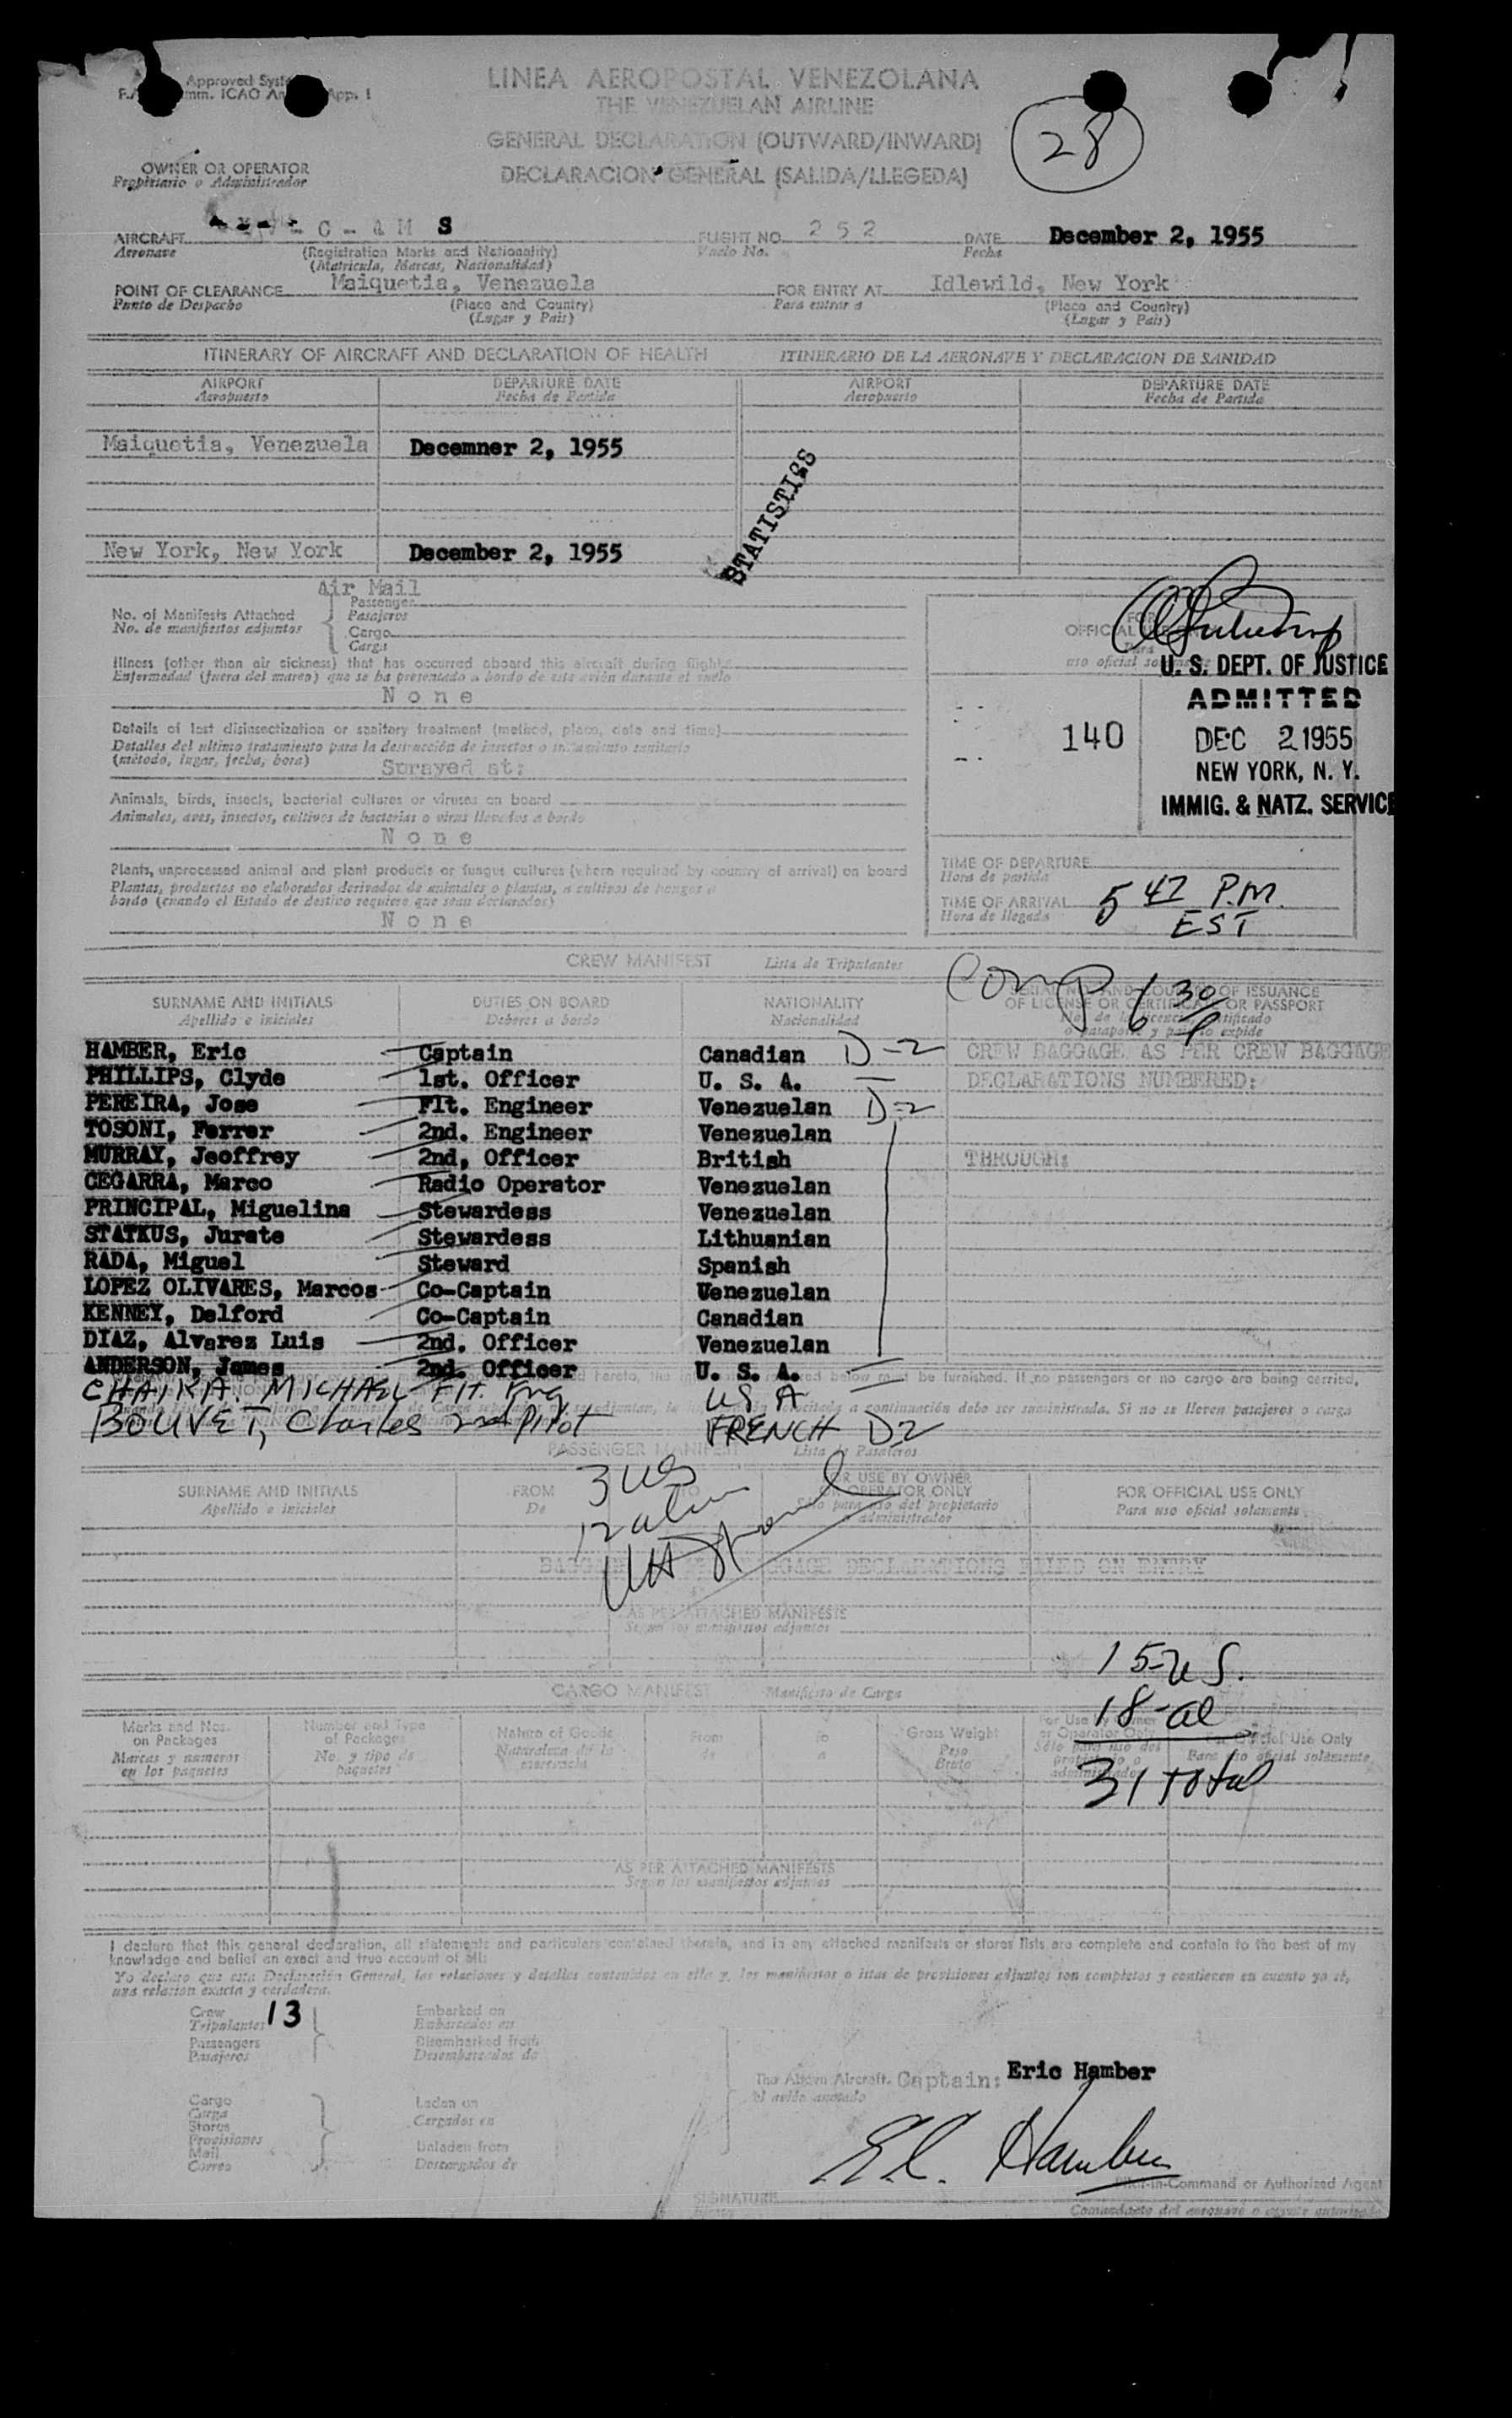 Approved Syst
F.A. mm. ICAO An App. 1
LINEA AEROPOSTAL VENEZOLANA
THE VENEZUELAN AIRLINE
GENERAL DECLARATION (OUTWARD/INWARD)
DECLARACION GENERAL (SALIDA/LLEGEDA)
28
OWNER OR OPERATOR
Propietario o Administrador
AIRCRAFT C - A M S FLIGHT NO. 252 DATE December 2, 1955
Aeronave (Registration Marks and Nationality) Vuelo No. Fecha
(Matricula, Marcas, Nacionalidad)
POINT OF CLEARANCE Maiquetia, Venezuela FOR ENTRY AT Idlewild, New York
Punto de Despacho (Place and Country) Para entrar a (Place and Country)
(Lugar y Pais) (Lugar y Pais)
ITINERARY OF AIRCRAFT AND DECLARATION OF HEALTH ITINERARIO DE LA AERONAVE Y DECLARACION DE SANIDAD
AIRPORT DEPARTURE DATE AIRPORT DEPARTURE DATE
Aeropuerto Fecha de Partida Aeropuerto Fecha de Partida
Maiquetia, Venezuela Decemner 2, 1955
STATISTICS
New York, New York December 2, 1955
Air Mail
No. of Manifests Attached Passenger
No. de manifiestos adjuntos Pasajeros
Cargo
Carga
Illness (other than air sickness) that has occurred aboard this aircraft during flight
Enfermedad (fuera del mareo) que se ha presentado a bordo de este avión durante el vuelo
None
Details of last disinsectization or sanitary treatment (method, place, date and time)
Detalles del ultimo tratamiento para la destrucción de insectos o tratamiento sanitario
(método, lugar, fecha, hora)
Sprayed at:
Animals, birds, insects, bacterial cultures or viruses on board
Animales, aves, insectos, cultivos de bacterias o virus llevados a bordo
None
Plants, unprocessed animal and plant products or fungus cultures (where required by country of arrival) on board
Plantas, productos no elaborados derivados de animales o plantas, o cultivos de hongos a
bordo (cuando el Estado de destino requiere que sean declarados)
None
FOR
OFFICIAL USE
Para
uso oficial
U. S. DEPT. OF JUSTICE
ADMITTED
140 DEC 2 1955
NEW YORK, N. Y.
IMMIG. & NATZ. SERVICE
TIME OF DEPARTURE
Hora de partida
TIME OF ARRIVAL 5 47 P.M.
Hora de llegada EST
CREW MANIFEST Lista de Tripulantes
Comp 6 30/P
SURNAME AND INITIALS DUTIES ON BOARD NATIONALITY SERIAL NO. AND COUNTRY OF ISSUANCE
Apellido e iniciales Deberes a bordo Nacionalidad OF LICENSE OR CERTIFICATE OR PASSPORT
No. de la licencia, certificado
o pasaporte y pais lo expide
HAMBER, Eric Captain Canadian D-2 CREW BAGGAGE AS PER CREW BAGGAGE
PHILLIPS, Clyde 1st. Officer U. S. A. — DECLARATIONS NUMBERED:
PEREIRA, Jose Flt. Engineer Venezuelan D-2
TOSONI, Ferrer 2nd. Engineer Venezuelan
MURRAY, Jeoffrey 2nd, Officer British THROUGH:
CEGARRA, Marco Radio Operator Venezuelan
PRINCIPAL, Miguelina Stewardess Venezuelan
STATKUS, Jurate Stewardess Lithuanian
RADA, Miguel Steward Spanish
LOPEZ OLIVARES, Marcos Co-Captain Venezuelan
KENNEY, Delford Co-Captain Canadian
DIAZ, Alvarez Luis 2nd. Officer Venezuelan
ANDERSON, James 2nd. Officer U. S. A. —
CHAIKA. MICHAEL FLT. Eng US A —
BOUVET, Charles 2nd Pilot FRENCH D2
below must be furnished. If no passengers or no cargo are being carried,
a continuación debe ser suministrada. Si no se llevan pasajeros o carga
PASSENGER MANIFEST Lista de Pasajeros
SURNAME AND INITIALS FROM TO FOR USE BY OWNER FOR OFFICIAL USE ONLY
Apellido e iniciales De OR OPERATOR ONLY Para uso oficial solamente
Sólo para uso del propietario
o administrador
3 US
12 alien
BAGGAGE DECLARATIONS FILED ON ENTRY
AS PER ATTACHED MANIFESTS
Según los manifiestos adjuntos
15-US.
18-al
31 total
CARGO MANIFEST Manifiesto de Carga
Marks and Nos. Number and Type Nature of Goods From To Gross Weight For Use by Owner For Official Use Only
on Packages of Packages Naturaleza de la de a Peso or Operator Only Para uso oficial solamente
Marcas y numeros No. y tipo de mercancia Bruto Sólo para uso del
en los paquetes paquetes propietario o
administrador
AS PER ATTACHED MANIFESTS
Según los manifiestos adjuntos
I declare that this general declaration, all statements and particulars contained therein, and in any attached manifests or stores lists are complete and contain to the best of my
knowledge and belief an exact and true account of all:
Yo declaro que esta Declaración General, las relaciones y detalles contenidos en ella y, los manifiestos o istas de provisiones adjuntos son completos y contienen en cuanto yo sé,
una relación exacta y verdadera.
Crew 13 Embarked on
Tripulantes Embarcados en
Passengers Disembarked from
Pasajeros Desembarcados de
The Above Aircraft. Captain: Eric Hamber
el avión anotado
Cargo Laden on
Carga Cargados en
Stores
Provisiones
Mail Unladen from
Correo Descargados de
E.C. Hamber
Pilot-in-Command or Authorized Agent
SIGNATURE
Comandante del aeronave o agente autorizado